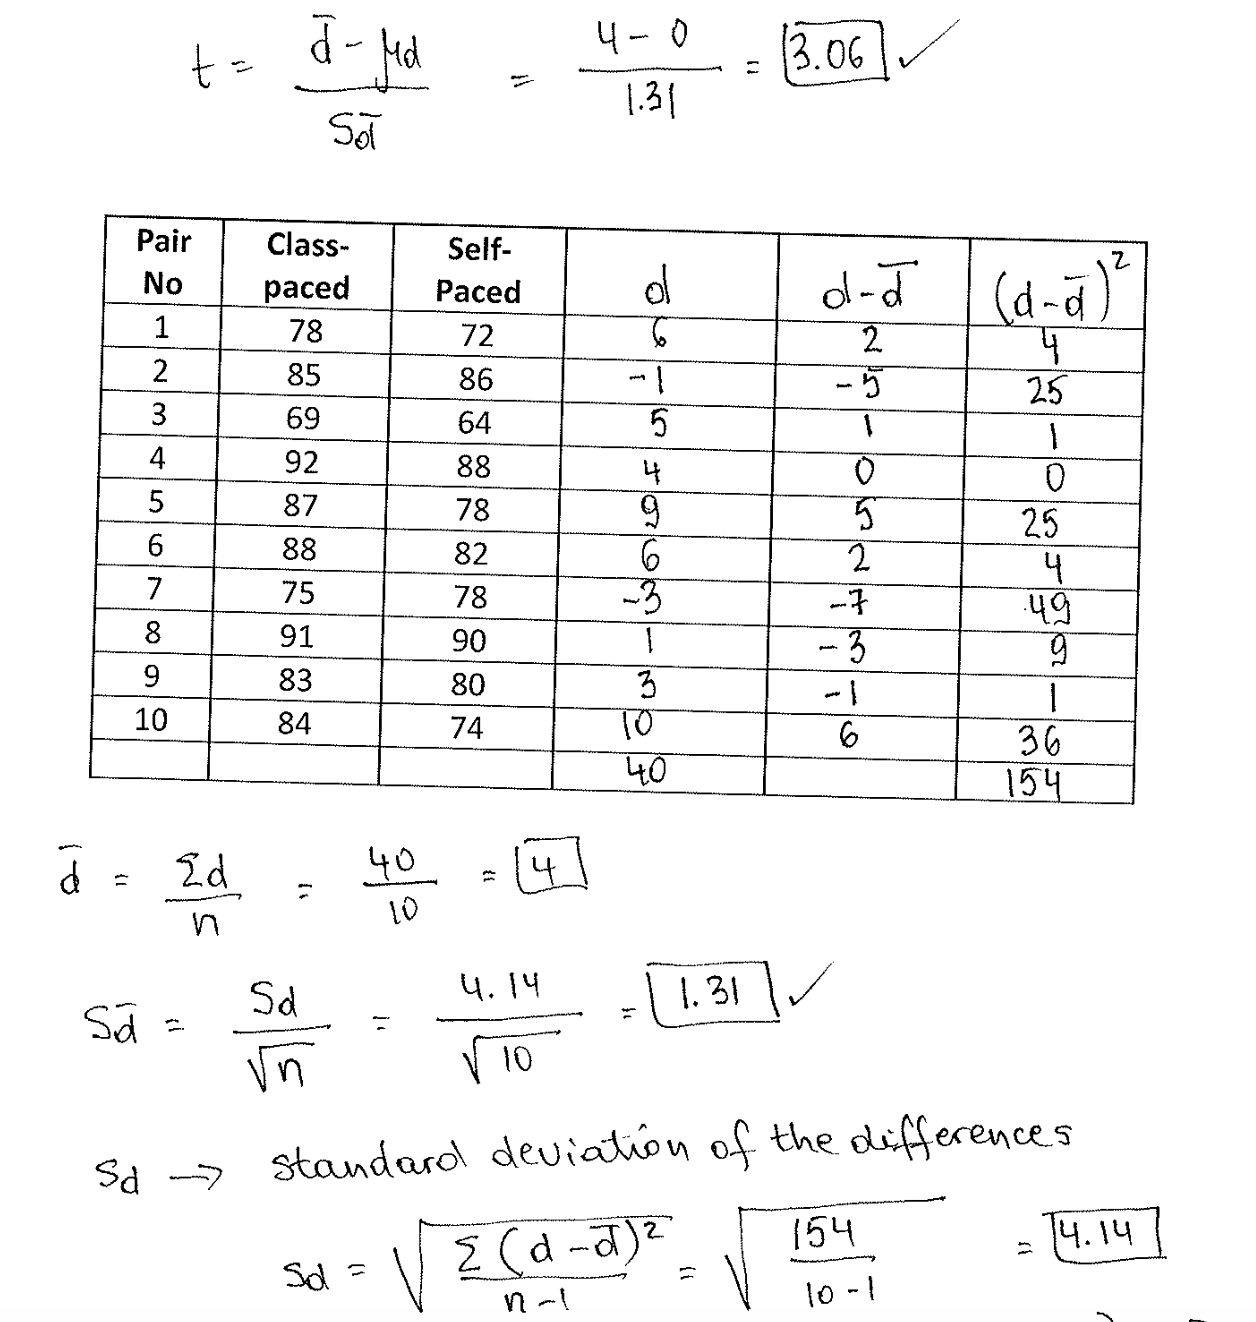 t = d̄ - μd / Sd̄ = 4 - 0 / 1.31 = 3.06 ✓
Pair No | Class-paced | Self-Paced | d | d - d̄ | (d - d̄)²
1 | 78 | 72 | 6 | 2 | 4
2 | 85 | 86 | -1 | -5 | 25
3 | 69 | 64 | 5 | 1 | 1
4 | 92 | 88 | 4 | 0 | 0
5 | 87 | 78 | 9 | 5 | 25
6 | 88 | 82 | 6 | 2 | 4
7 | 75 | 78 | -3 | -7 | 49
8 | 91 | 90 | 1 | -3 | 9
9 | 83 | 80 | 3 | -1 | 1
10 | 84 | 74 | 10 | 6 | 36
40 | 154
d̄ = Σd / n = 40 / 10 = 4
Sd̄ = Sd / √n = 4.14 / √10 = 1.31 ✓
Sd → standard deviation of the differences
Sd = √(Σ(d - d̄)² / n-1) = √(154 / 10-1) = 4.14